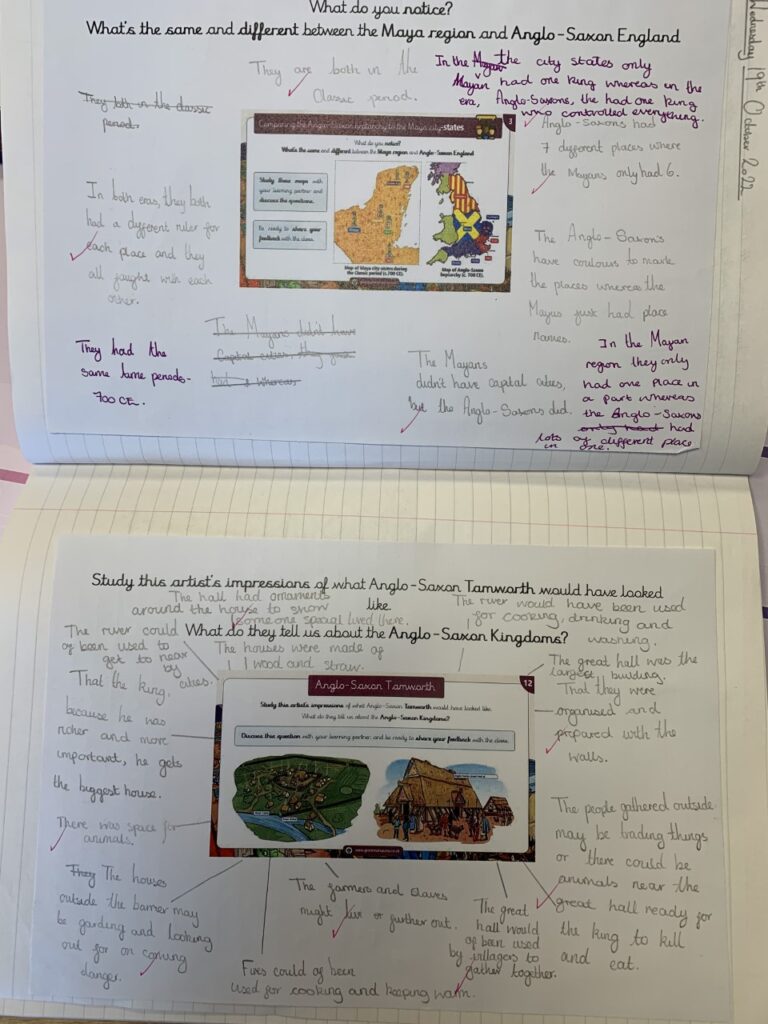 What do you notice?
What's the same and different between the Maya region and Anglo-Saxon England
Wednesday 19th October 2022
They are both in the
Classic period.
In the Mayan the city states only
Mayan had one king whereas in the
era, Anglo-Saxons, the had one king
who controlled everything.
They both in the classic
period.
Comparing the Anglo-Saxon heptarchy to the Maya city-states
3
What do you notice?
What's the same and different between the Maya region and Anglo-Saxon England
Study these maps with
your learning partner and
discuss the questions.
Be ready to share your
feedback with the class.
Map of Maya city-states during
the Classic period (c.700 CE).
Map of Anglo-Saxon
heptarchy (c. 700 CE).
Anglo-Saxons had
7 different places where
the Mayans only had 6.
In both eras, they both
had a different ruler for
each place and they
all fought with each
other.
The Anglo-Saxons
have coulours to mark
the places whereas the
Mayas just had place
names.
They had the
same time periods-
700 CE.
The Mayans didn't have
Capital cities, they just
had 1 whereas
The Mayans
didn't have capital cities,
but the Anglo-Saxons did.
In the Mayan
region they only
had one place in
a part whereas
the Anglo-Saxons
only had had
lots of different place
in one.
Study this artist's impressions of what Anglo-Saxon Tamworth would have looked
like.
What do they tell us about the Anglo-Saxon Kingdoms?
The hall had ornaments
around the house to show
someone special lived there.
The river would have been used
for cooking, drinking and
washing.
The river could
of been used to
get to near
by
cities.
The houses were made of
wood and straw.
The great hall was the
largest building.
That the king,
because he was
richer and more
important, he gets
the biggest house.
Anglo-Saxon Tamworth
12
Study this artist's impressions of what Anglo-Saxon Tamworth would have looked like.
What do they tell us about the Anglo-Saxon Kingdoms?
Discuss this question with your learning partner, and be ready to share your feedback with the class.
That they were
organised and
prepared with the
walls.
There was space for
animals.
They The houses
outside the barrier may
be garding and looking
out for on coming
danger.
Fires could of been
used for cooking and keeping warm.
The farmers and slaves
might live or further out.
The great
hall would
of been used
by villagers to
gather together.
The people gathered outside
may be trading things
or there could be
animals near the
great hall ready for
the king to kill
and eat.